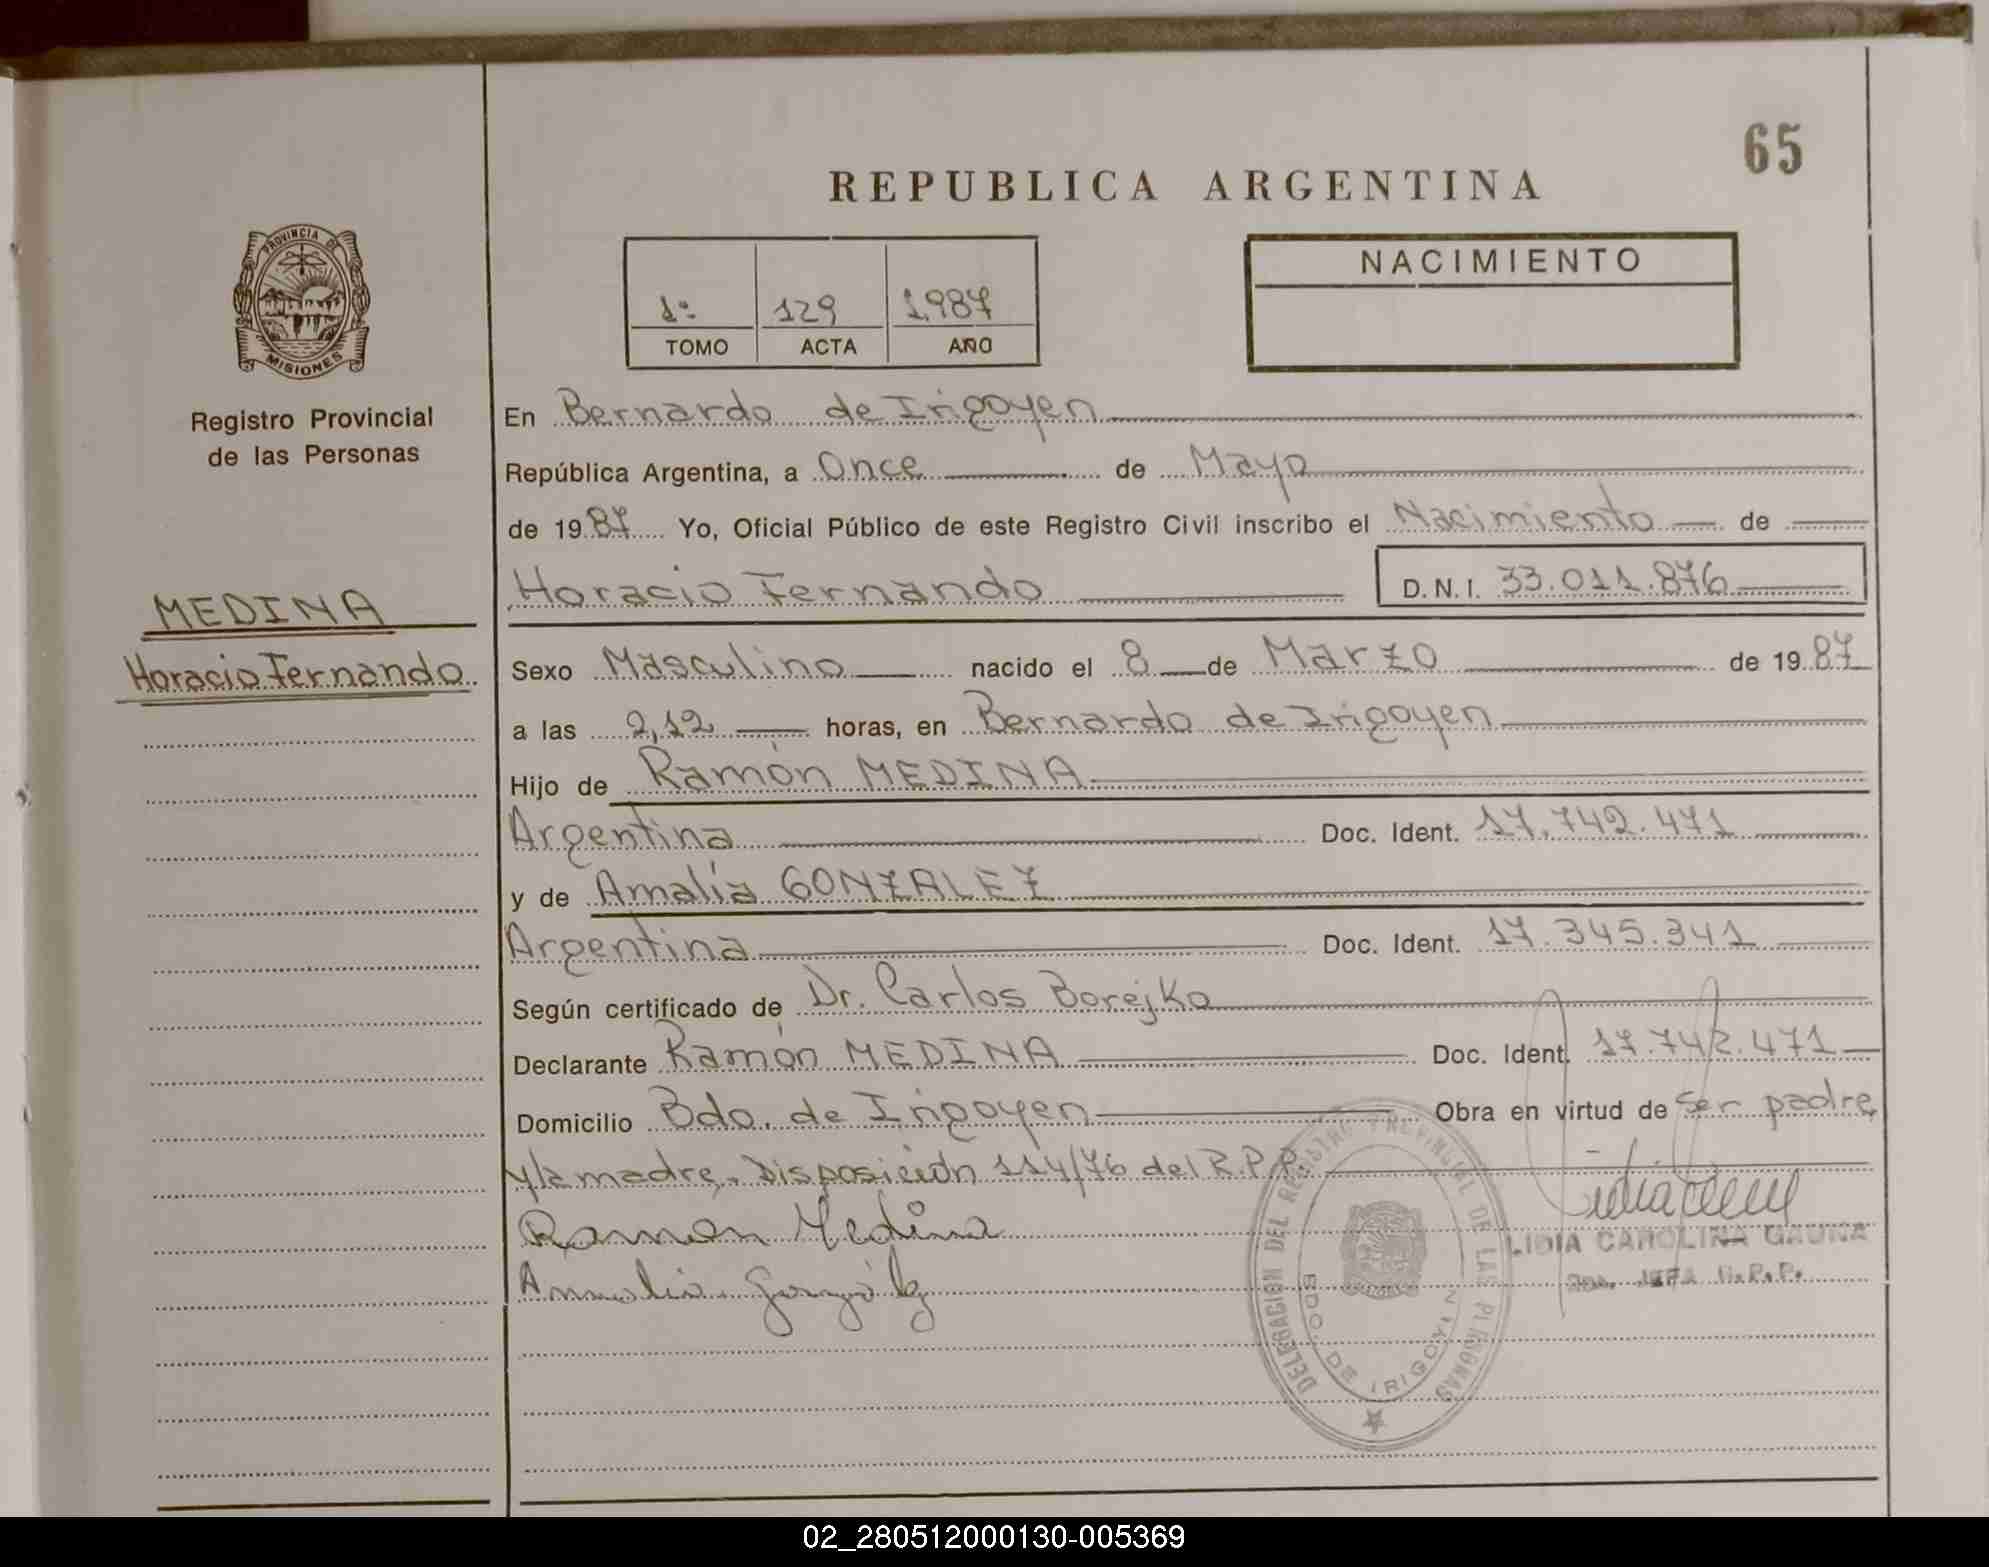 65
REPUBLICA ARGENTINA
PROVINCIA DE
MISIONES
Registro Provincial
de las Personas
MEDINA
Horacio Fernando
1º 129 1.987
TOMO ACTA AÑO
NACIMIENTO
En Bernardo de Irigoyen
República Argentina, a Once de Mayo
de 1987 Yo, Oficial Público de este Registro Civil inscribo el Nacimiento de
Horacio Fernando D.N.I. 33.011.876
Sexo Masculino nacido el 8 de Marzo de 1987
a las 2,12 horas, en Bernardo de Irigoyen
Hijo de Ramón MEDINA
Argentina Doc. Ident. 17.742.471
y de Amalia GONZALEZ
Argentina Doc. Ident. 17.345.341
Según certificado de Dr. Carlos Borejko
Declarante Ramón MEDINA Doc. Ident. 17.742.471
Domicilio Bdo. de Irigoyen Obra en virtud de ser padre
y la madre. Disposición 114/76 del R.P.P.
Ramon Medina
Amalia Gonzalez
DELEGACION DEL REGISTRO PROVINCIAL DE LAS PERSONAS
BDO. DE IRIGOYEN
LIDIA CAROLINA GAUNA
JEFA R.P.P.
02_280512000130-005369